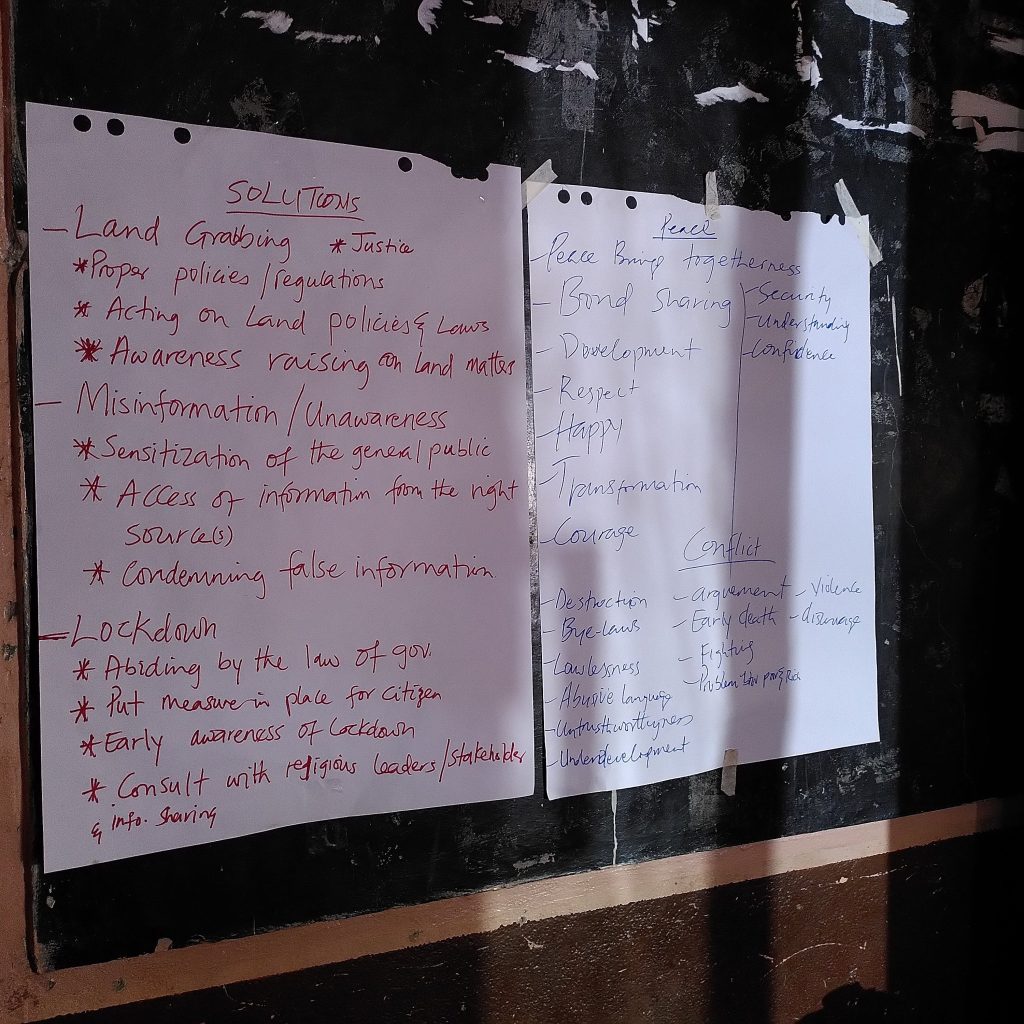 SOLUTIONS
- Land Grabbing * Justice
* Proper policies/regulations
* Acting on Land policies & Laws
* Awareness raising on land matter
- Misinformation/Unawareness
* Sensitization of the general public
* Access of information from the right
source(s)
* Condemning false information
- Lockdown
* Abiding by the law of gov.
* Put measure in place for citizen
* Early awareness of Lockdown
* Consult with religious leaders/stakeholder
& info. sharing
Peace
- Peace Bring togetherness
- Bond sharing
- Development
- Respect
- Happy
- Transformation
- Courage
- Security
- Understanding
- Confidence
Conflict
- Destruction
- Bye-laws
- Lawlessness
- Abusive language
- Untrustworthyness
- Underdevelopment
- arguement
- Early death
- Fighting
- Problem poor & Rich
- Violence
- discourage